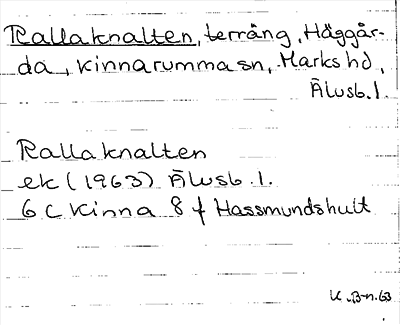 Rallaknalten, terräng, Häggår-
da, Kinnarumma sn, Marks hd,
Älvsb. l.
Rallaknalten
ek (1963) Älvsb. l.
6 C Kinna 8 f Hassmundshult
K. B-n. 63